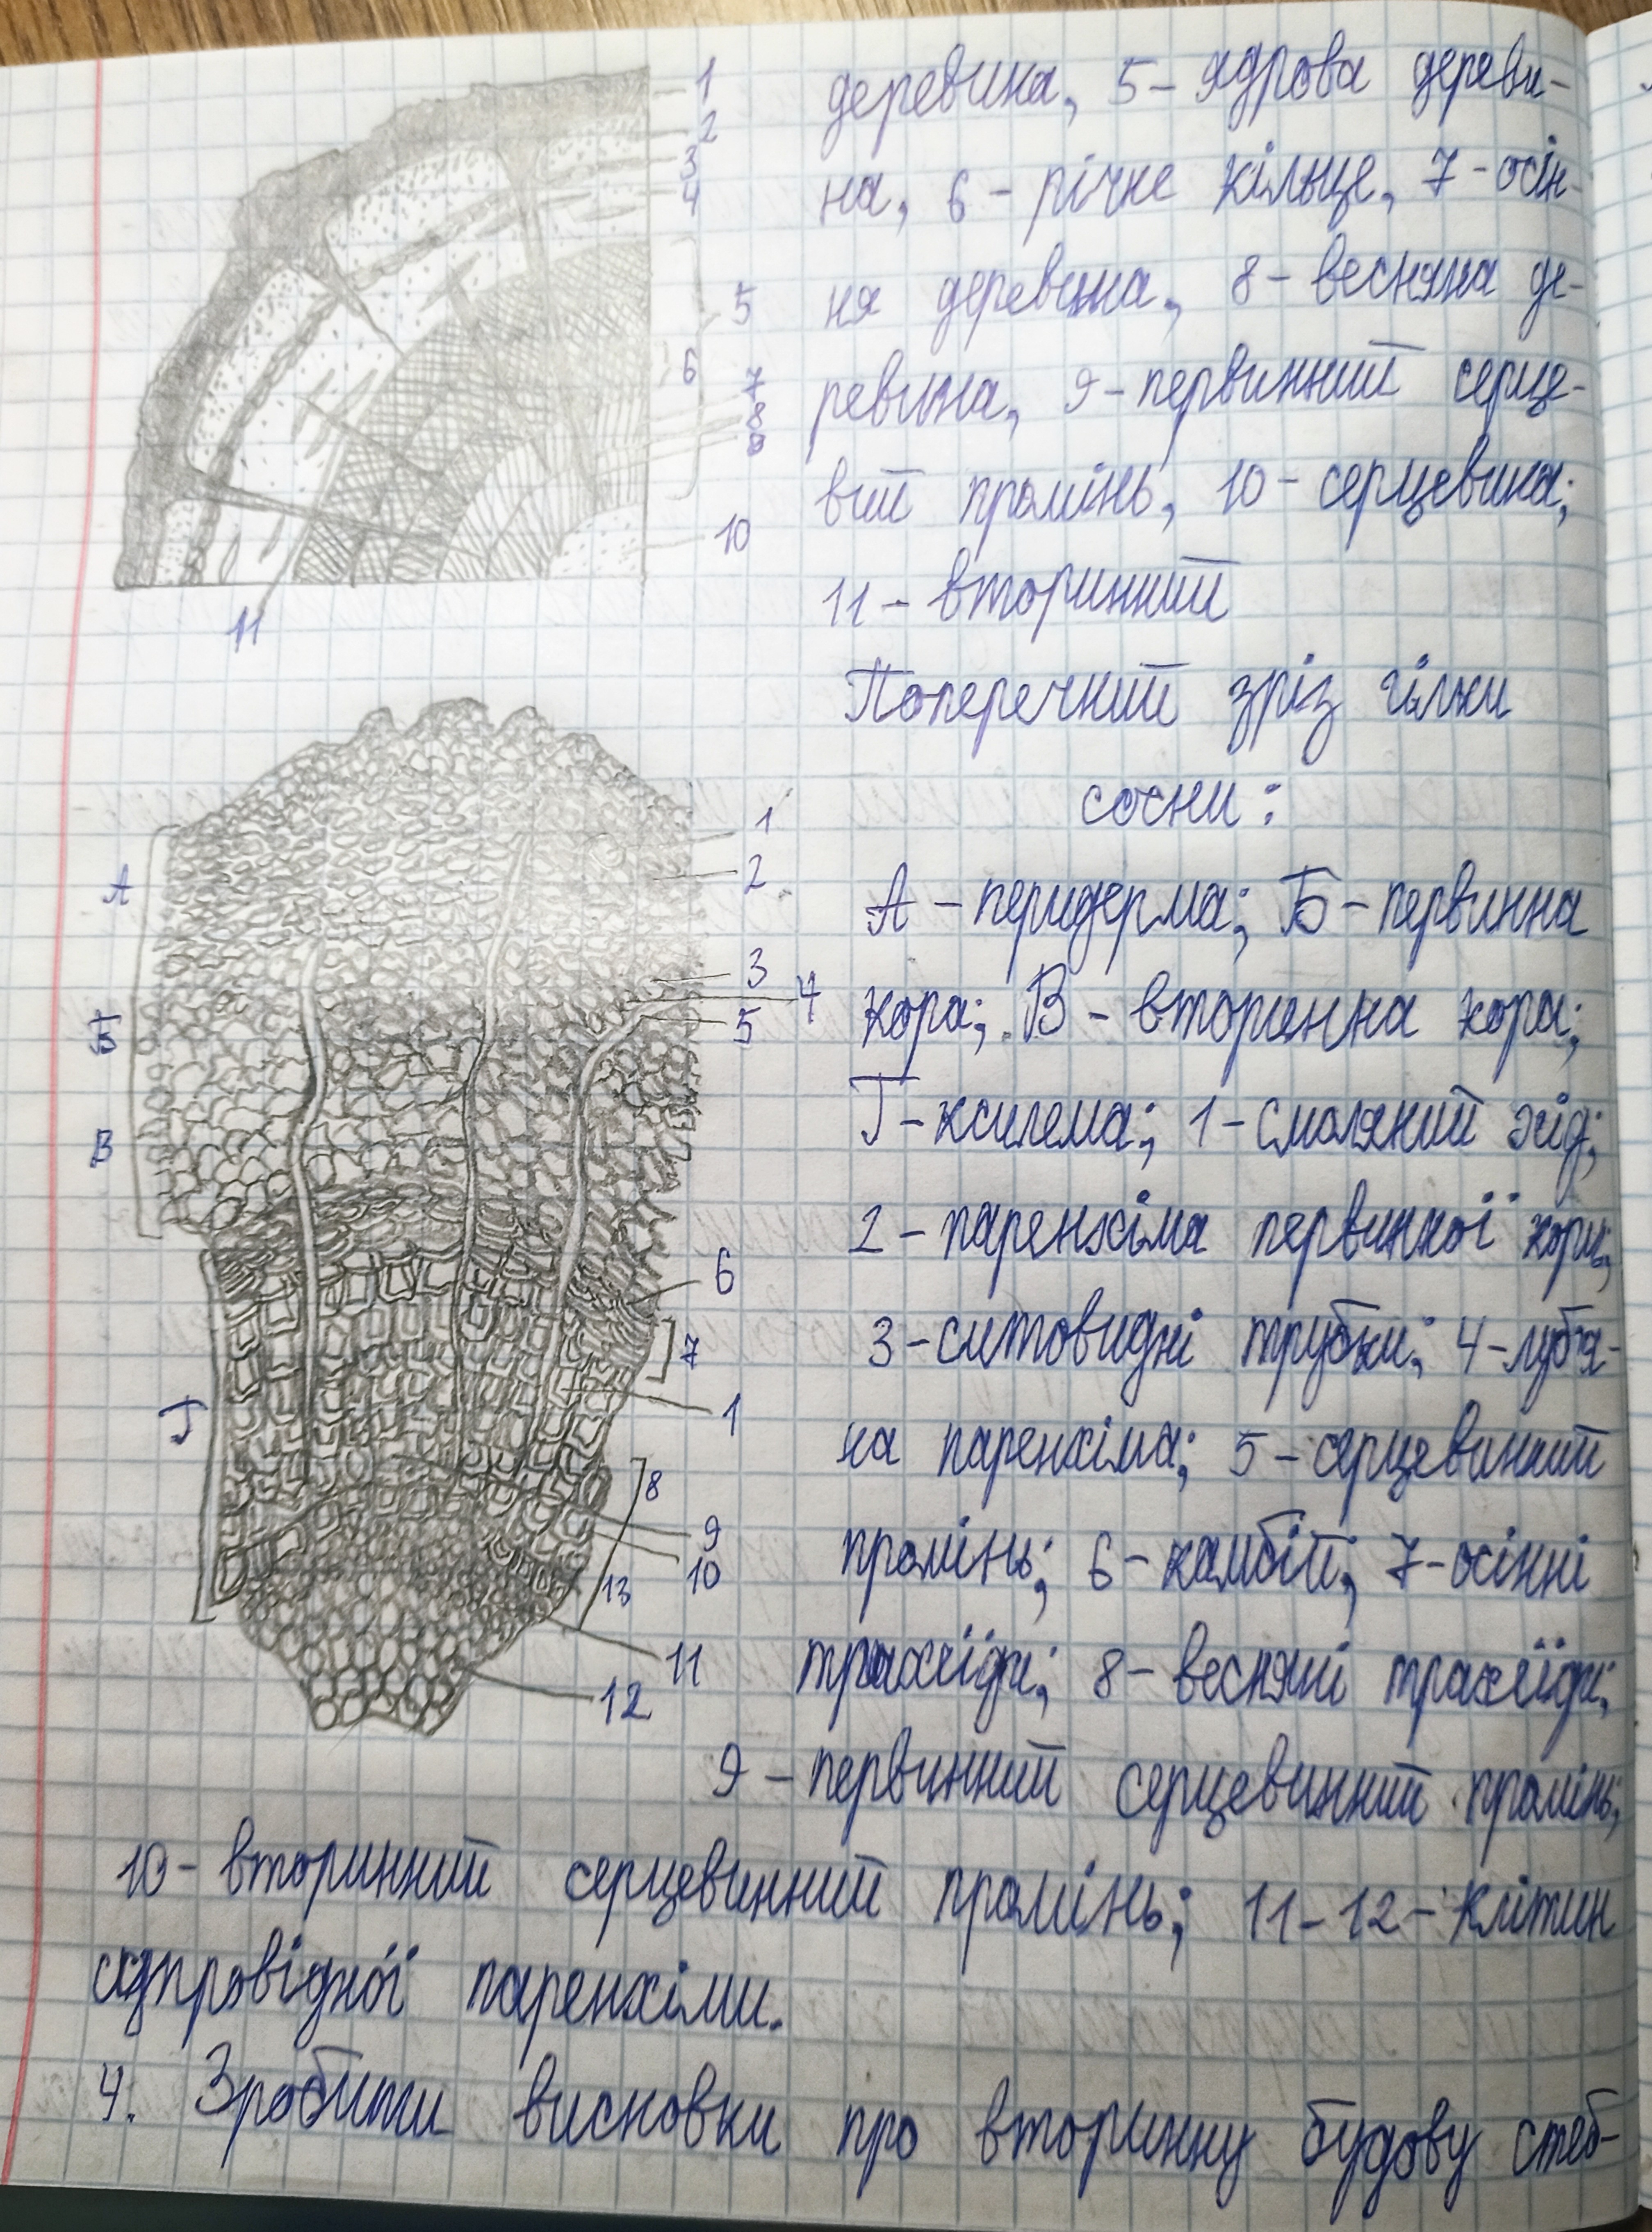 деревина, 5 – ядрова дереви-
на, 6 – річне кільце, 7 – осін-
ня деревина, 8 – весняна де-
ревина, 9 – первинний серце-
вий промінь, 10 – серцевина;
11 – вторинний
1
2
3
4
5
6
7
8
9
10
11
Поперечний зріз гілки
сосни:
А – перидерма; Б – первинна
кора; В – вторинна кора;
Г – ксилема; 1 – смоляний хід;
2 – паренхіма первинної кори;
3 – ситовидні трубки; 4 – луб'я-
на паренхіма; 5 – серцевинний
промінь; 6 – камбій; 7 – осінні
трахеїди; 8 – весняні трахеїди;
9 – первинний серцевинний промінь;
10 – вторинний серцевинний промінь; 11 – 12 – клітин
паренхіми.
А
Б
В
Г
1
2
3
4
5
6
7
1
8
9
10
13
11
12
4. Зробити висновки про вторинну будову стеб-